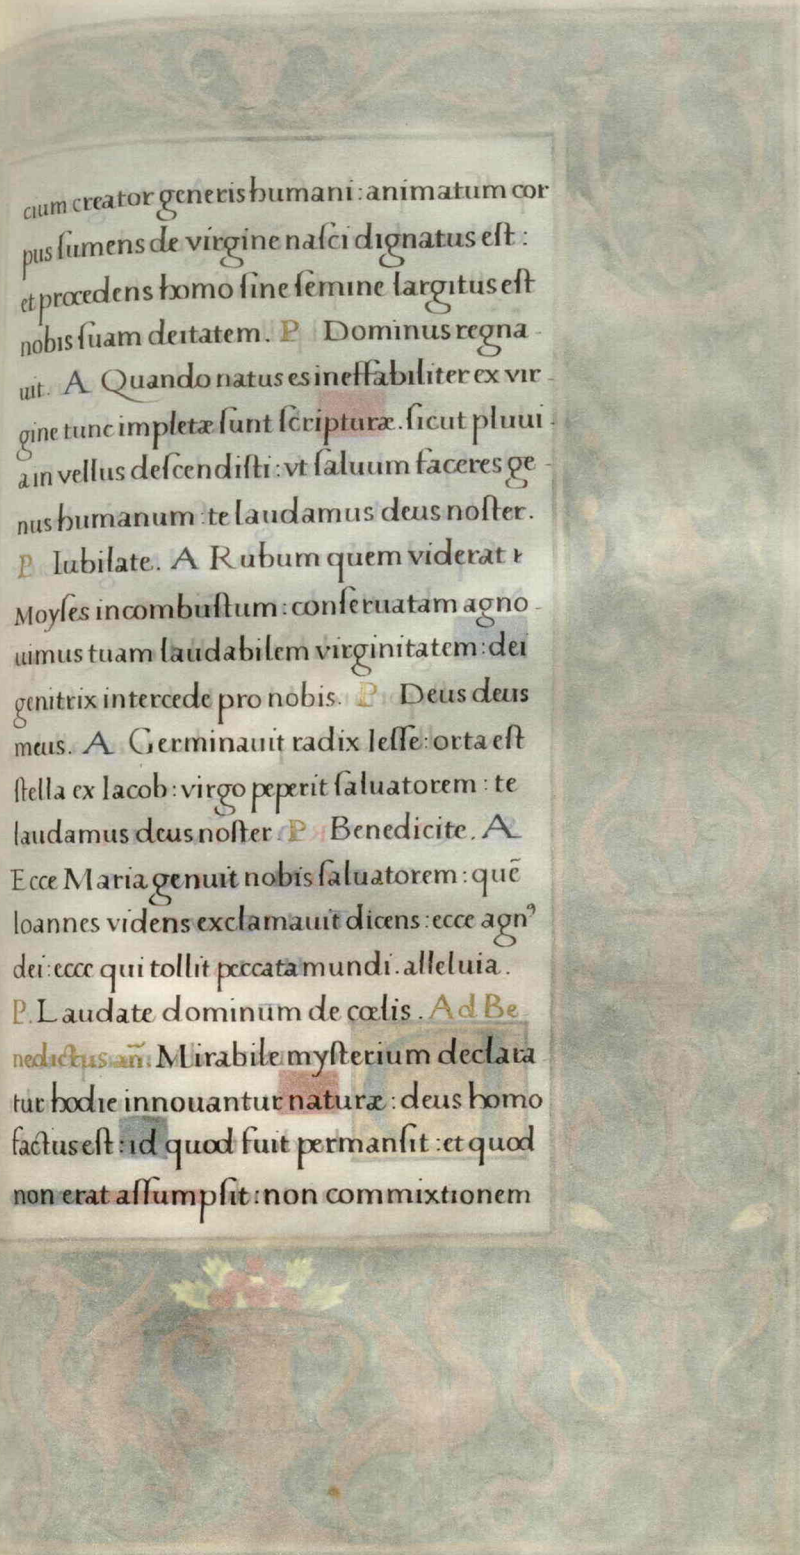 cium creator generis humani : animatum cor
pus ſumens de virgine naſci dignatus eſt :
et procedens homo ſine ſemine largitus eſt
nobis ſuam deitatem. P Dominus regna-
uit. A Quando natus es ineffabiliter ex vir-
gine tunc impletæ ſunt ſcripturæ. ſicut pluui-
a in vellus deſcendiſti : vt ſaluum faceres ge-
nus humanum : te laudamus deus noſter.
P Iubilate. A Rubum quem viderat
Moyſes incombuſtum : conſeruatam agno-
uimus tuam laudabilem virginitatem : dei
genitrix intercede pro nobis. P Deus deus
meus. A Germinauit radix Ieſſe : orta eſt
ſtella ex Iacob : virgo peperit ſaluatorem : te
laudamus deus noſter. P Benedicite. A
Ecce Maria genuit nobis ſaluatorem : quē
Ioannes videns exclamauit dicens : ecce agnꝰ
dei : ecce qui tollit peccata mundi. alleluia.
P. Laudate dominum de cœlis. Ad Be
nedictus añ. Mirabile myſterium declara
tur hodie innouantur naturæ : deus homo
factus eſt : id quod fuit permanſit : et quod
non erat aſſumpſit : non commixtionem